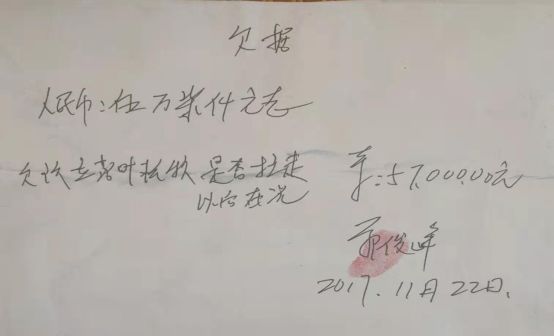 欠据
人民币:伍万柒仟元走
欠款 落叶松款 是否拉走
以后在说
¥:57,000.00元
俊峰
2017.11月22日.